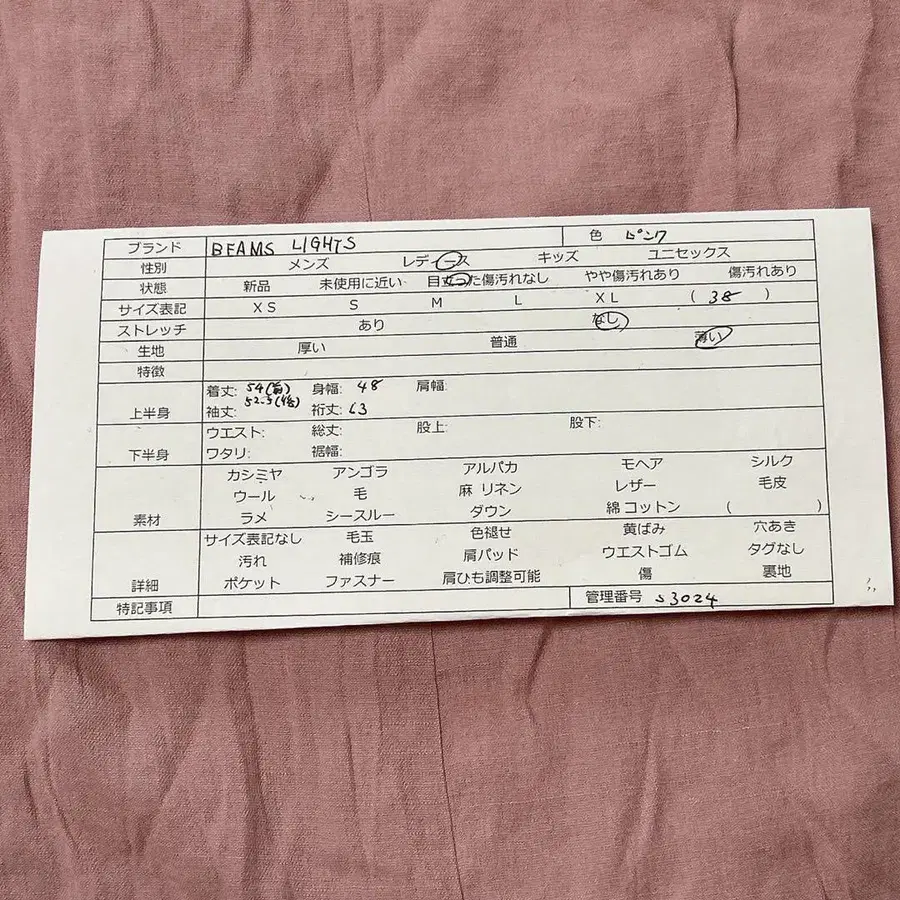 ブランド BEAMS LIGHTS 色 ピンク
性別 メンズ レディース キッズ ユニセックス
状態 新品 未使用に近い 目立った傷汚れなし やや傷汚れあり 傷汚れあり
サイズ表記 XS S M L XL ( 38 )
ストレッチ あり なし
生地 厚い 普通 薄い
特徴
上半身 着丈: 54(前) 身幅: 48 肩幅:
52.5(後)
袖丈: 裄丈: 63
下半身 ウエスト: 総丈: 股上: 股下:
ワタリ: 裾幅:
素材 カシミヤ アンゴラ アルパカ モヘア シルク
ウール 毛 麻 リネン レザー 毛皮
ラメ シースルー ダウン 綿 コットン ( )
詳細 サイズ表記なし 毛玉 色褪せ 黄ばみ 穴あき
汚れ 補修痕 肩パッド ウエストゴム タグなし
ポケット ファスナー 肩ひも調整可能 傷 裏地
特記事項 管理番号 s3024